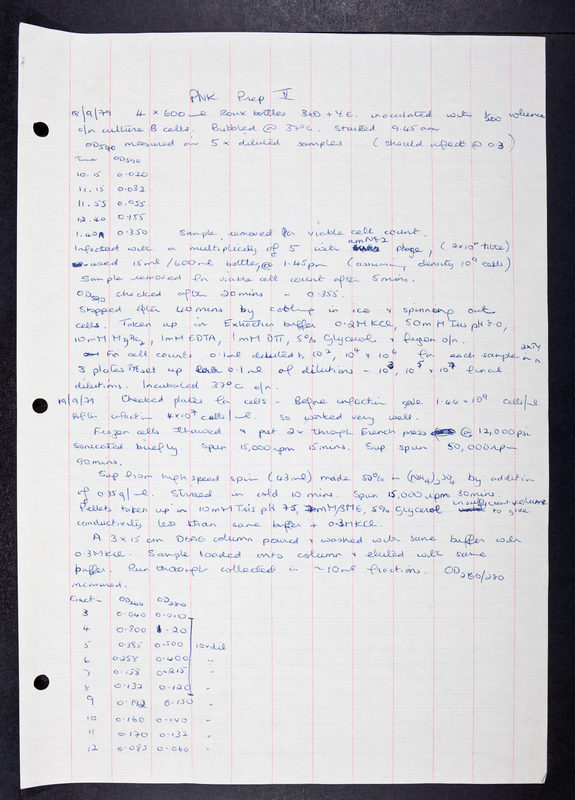 PNK Prep II
18/9/79 4 × 600 ml Roux bottles 3XD + Y.C. inoculated with 1/500 volume
o/n culture B cells. Bubbled @ 37°C. Started 9.45 am
OD590 measured on 5 × diluted samples (should infect @ 0.3)
Time OD590
10.15 0.020
11.15 0.032
11.55 0.055
12.40 0.155
1.40 0.350 Sample removed for viable cell count.
Infected with a multiplicity of 5 with amN82 phage, (2×10 titre)
used 15ml/600ml bottle, @ 1.45pm (assuming density 10⁹ cells)
Sample removed for viable cell count after 5 mins.
OD590 checked after 20 mins - 0.355.
Stopped after 40 mins by cooling in ice & spinning out
cells. Taken up in Extraction buffer 0.2M KCl, 50mM Tris pH 8.0,
10mM MgCl2, 1mM EDTA, 1mM DTT, 5% Glycerol & frozen o/n.
For cell counts 0.1ml diluted to 10², 10⁴ & 10⁶ for each sample in 2xTY
3 plates TYE set up 0.1ml of dilutions - 10³, 10⁵, 10⁷ final
dilutions. Incubated 37°C o/n.
19/9/79 Checked plates for cells - Before infection gave 1.44 × 10⁹ cells/ml
After infection 4×10⁷ cells/ml so worked very well.
Frozen cells thawed & put 2× through French press @ 12,000 psi
sonicated briefly Spun 15,000 rpm 15 mins. Sup spun 50,000 rpm
90 mins.
Sup from high speed spin (43ml) made 50% in (NH4)2SO4 by addition
of 0.35g/ml. Stirred in cold 10 mins. Spun 15,000 rpm 30 mins
Pellets taken up in 10mM Tris pH 7.5, 7mM βME, 5% Glycerol in sufficient volume to give
conductivity less than same buffer + 0.3M KCl.
A 3×15 cm DEAE column poured & washed with same buffer with
0.3M KCl. Sample loaded onto column & eluted with same
buffer. Run through collected in ~10ml fractions. OD260/280
measured.
Fraction OD260 OD280
3 0.040 0.010
4 0.300 1.20
5 0.385 0.500 10× dil
6 0.258 0.400 "
7 0.158 0.215 "
8 0.132 0.120 "
9 0.142 0.150 "
10 0.160 0.140 "
11 0.170 0.132 "
12 0.085 0.060 "